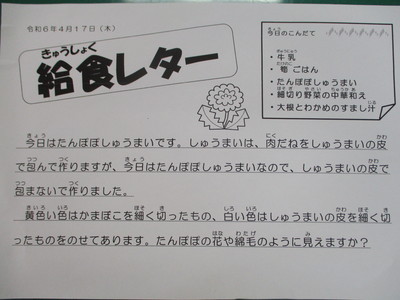 令和6年4月17日（木）
きゅうしょく
給食レター
今日のこんだて
・牛乳
・ ごはん
・たんぽぽしゅうまい
・細切り野菜の中華和え
・大根とわかめのすまし汁
今日はたんぽぽしゅうまいです。しゅうまいは、肉だねをしゅうまいの皮
で包んで作りますが、今日はたんぽぽしゅうまいなので、しゅうまいの皮で
包まないで作りました。
黄色い色はかまぼこを細く切ったもの、白い色はしゅうまいの皮を細く切
ったものをのせてあります。たんぽぽの花や綿毛のように見えますか？